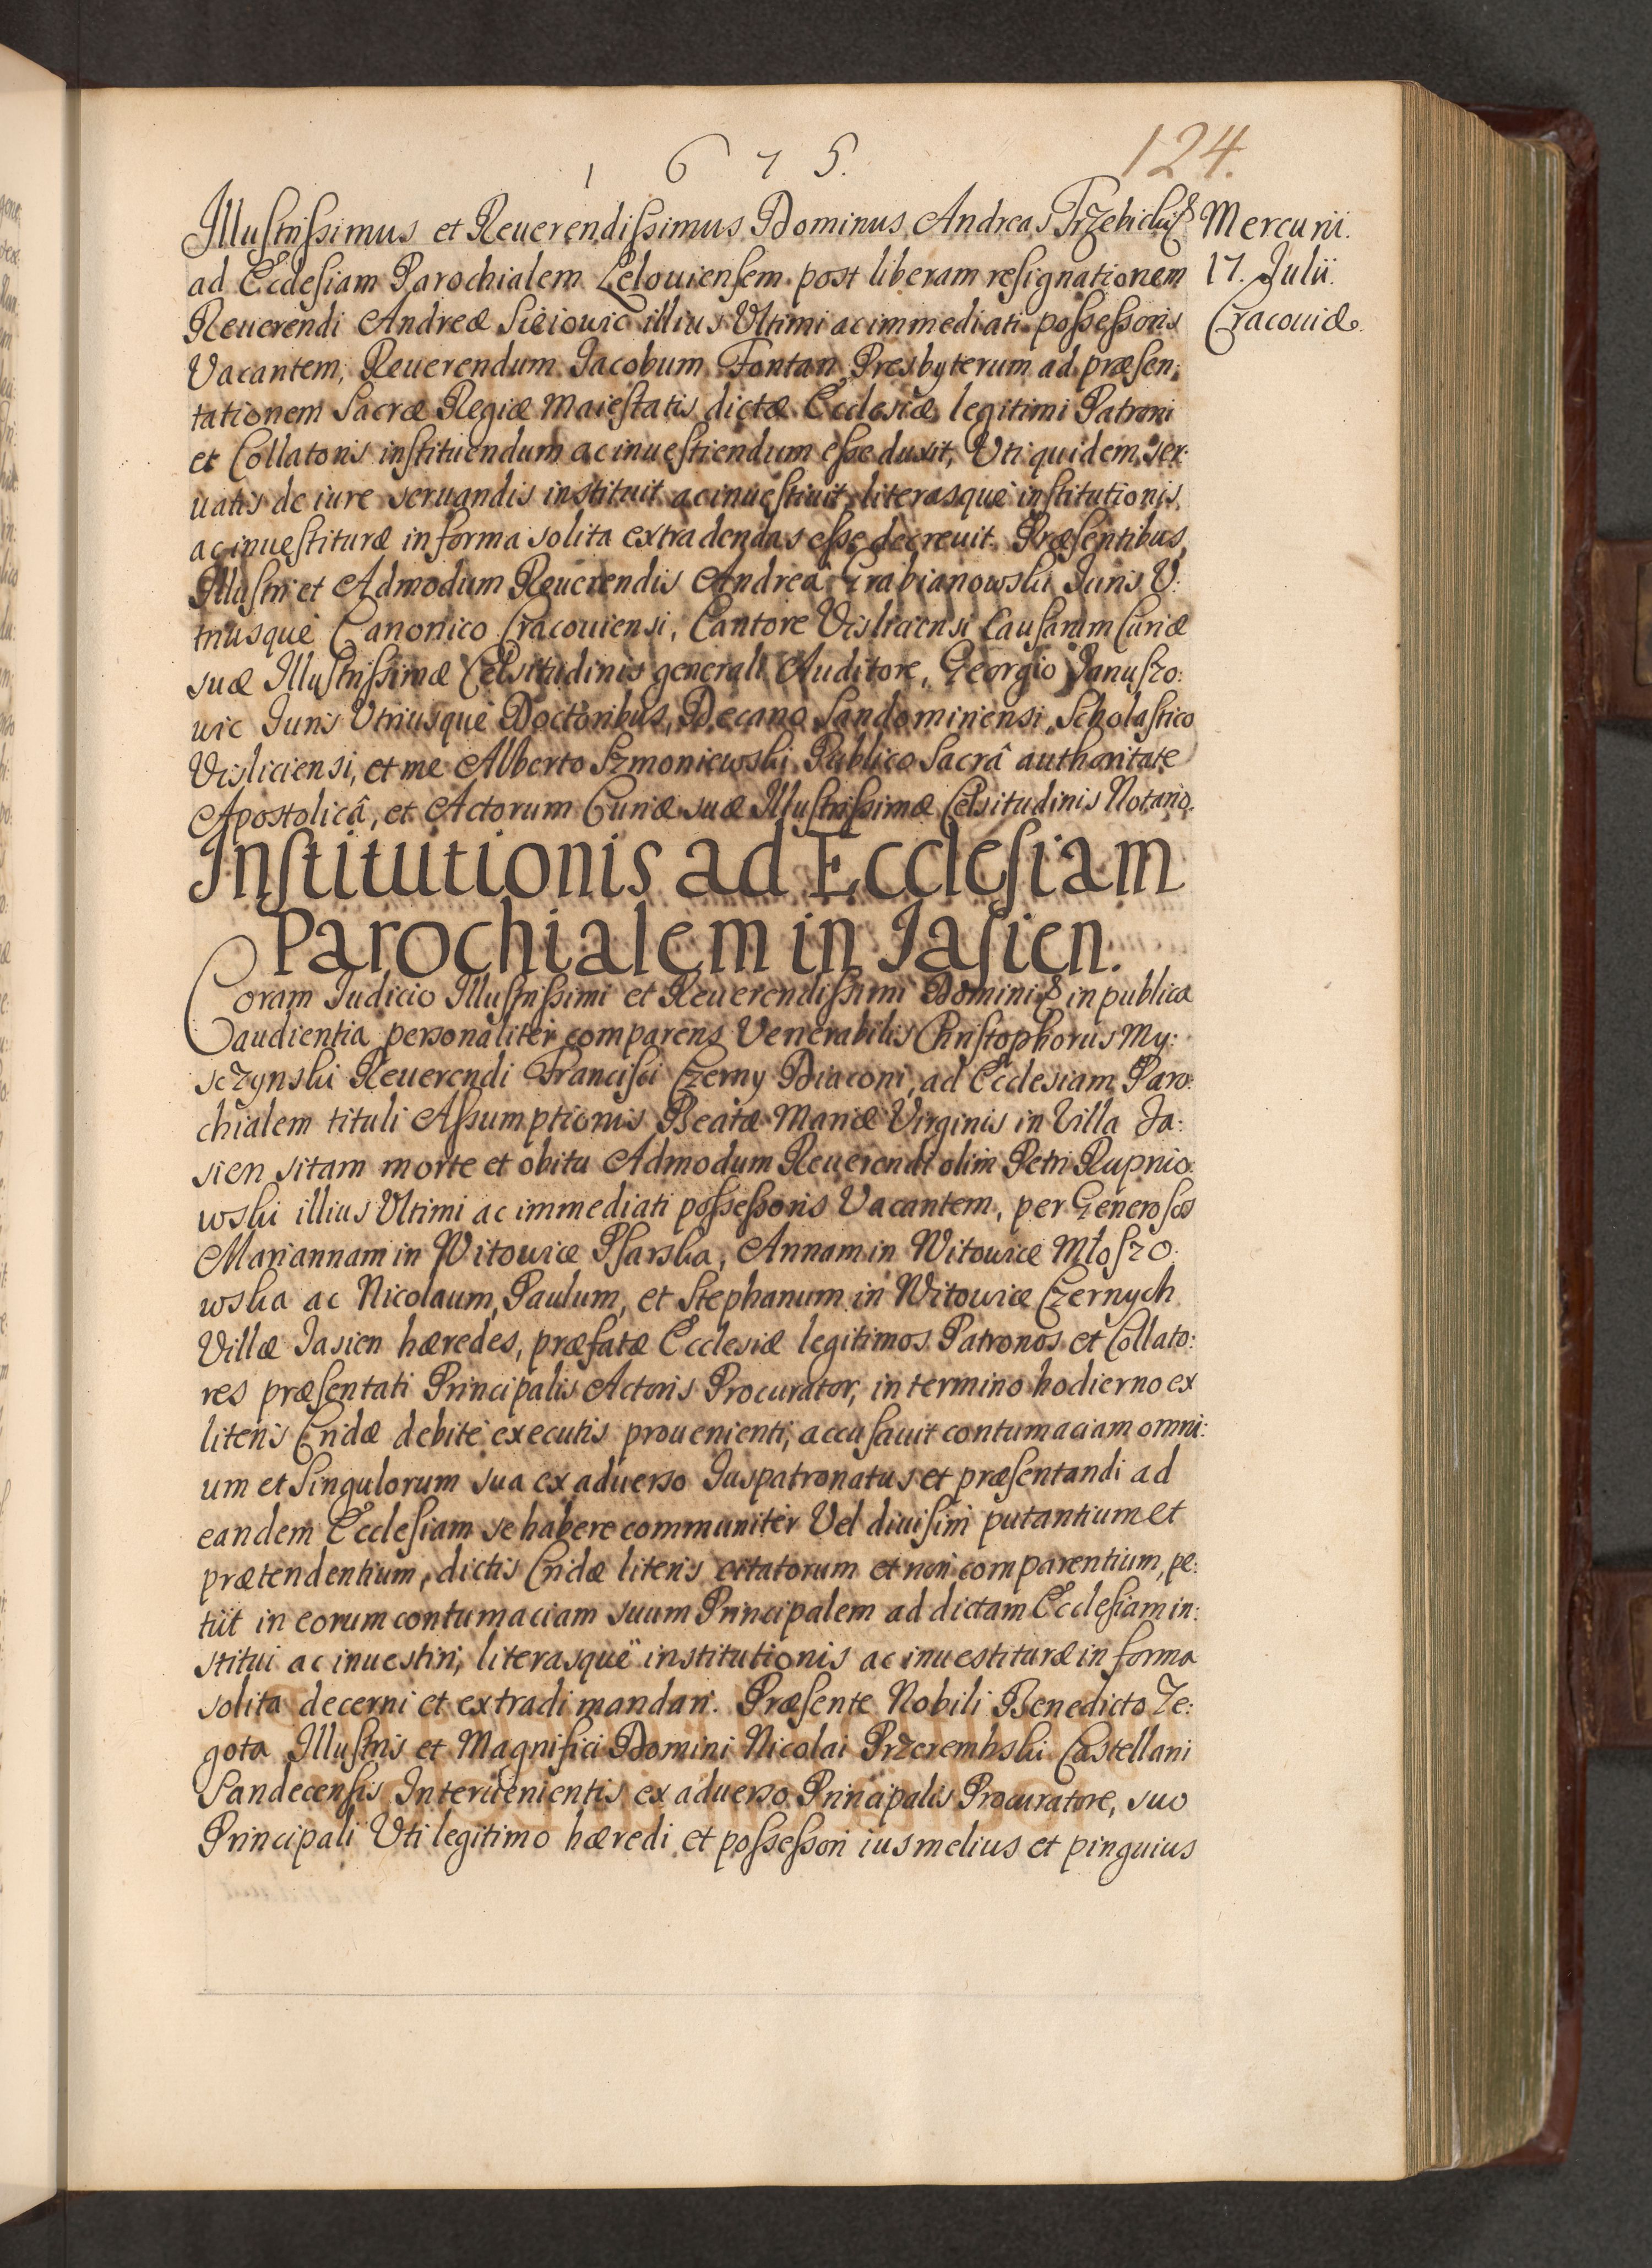 1675.
124.
Illustrissimus et Reuerendissimus Dominus Andreas Trzebicki &
Mercurii.
17. Julii.
Cracouiæ.
ad Ecclesiam Parochialem Lelouiensem post liberam resignationem
Reuerendi Andreæ illius Vltimi ac immediati possessoris
Vacantem, Reuerendum Jacobum Fontan Presbyterum ad præsen:
tationem Sacræ Regiæ Maiestatis dictæ Ecclesiæ legitimi Patroni
et Collatoris instituendum ac inuestiendum esse duxit, Vti quidem ser:
uatis de iure seruandis instituit ac inuestiuit, literasque institutionis,
ac inuestituræ in forma solita extradendas esse decreuit. Præsentibus,
Illustri et Admodum Reuerendis Andrea Grabianowski Juris V:
triusque Canonico Cracouiensi, Cantore Visliciensi Causarum Curiæ
suæ Illustrissimæ Celsitudinis generali Auditore, Georgio Januszo:
wic Juris Vtriusque Doctoribus, Decano Sandomiriensi, Scholastico
Visliciensi, et me Alberto Szmoniewski Publico Sacrâ authoritate
Apostolicâ, et Actorum Curiæ suæ Illustrissimæ Celsitudinis Notario.
Institutionis ad Ecclesiam
Parochialem in Jasien.
Coram Judicio Illustrissimi et Reuerendissimi Domini & in publica
audientia personaliter comparens Venerabilis Christophorus My:
sczynski Reuerendi Francisci Czerny Diaconi, ad Ecclesiam Paro:
chialem tituli Assumptionis Beatæ Mariæ Virginis in Villa Ja:
sien sitam morte et obitu Admodum Reuerendi olim Petri Rupnio:
wski illius Vltimi ac immediati possessoris Vacantem, per Generosos
Mariannam in Witowice Psarska, Annam in Witowice Młoszo:
wska ac Nicolaum, Paulum, et Stephanum in Witowice Czernych
Villæ Jasien hæredes, præfatæ Ecclesiæ legitimos Patronos et Collato:
res præsentati Principalis Actoris Procurator, in termino hodierno ex
literis Cridæ debite executis prouenienti, accusauit contumaciam omni:
um et Singulorum sua ex aduerso Juspatronatus et præsentandi ad
eandem Ecclesiam se habere communiter Vel diuisim putantium et
prætendentium, dictis Cridæ literis citatorum et non comparentium, pe:
tiit in eorum contumaciam suum Principalem ad dictam Ecclesiam in:
stitui ac inuestiri, literasque institutionis ac inuestituræ in forma
solita decerni et extradi mandari. Præsente Nobili Benedicto Ze:
gota Illustris et Magnifici Domini Nicolai Przerembski Castellani
Sandecensis Interuenientis ex aduerso Principalis Procuratore, suo
Principali Vti legitimo hæredi et possessori ius melius et pinguius